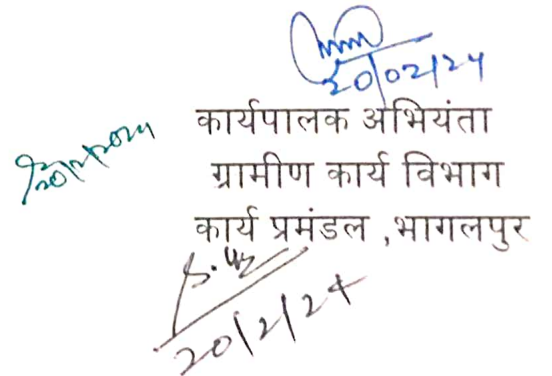 20/02/24
कार्यपालक अभियंता
20/2/2024
ग्रामीण कार्य विभाग
कार्य प्रमंडल ,भागलपुर
20/2/24